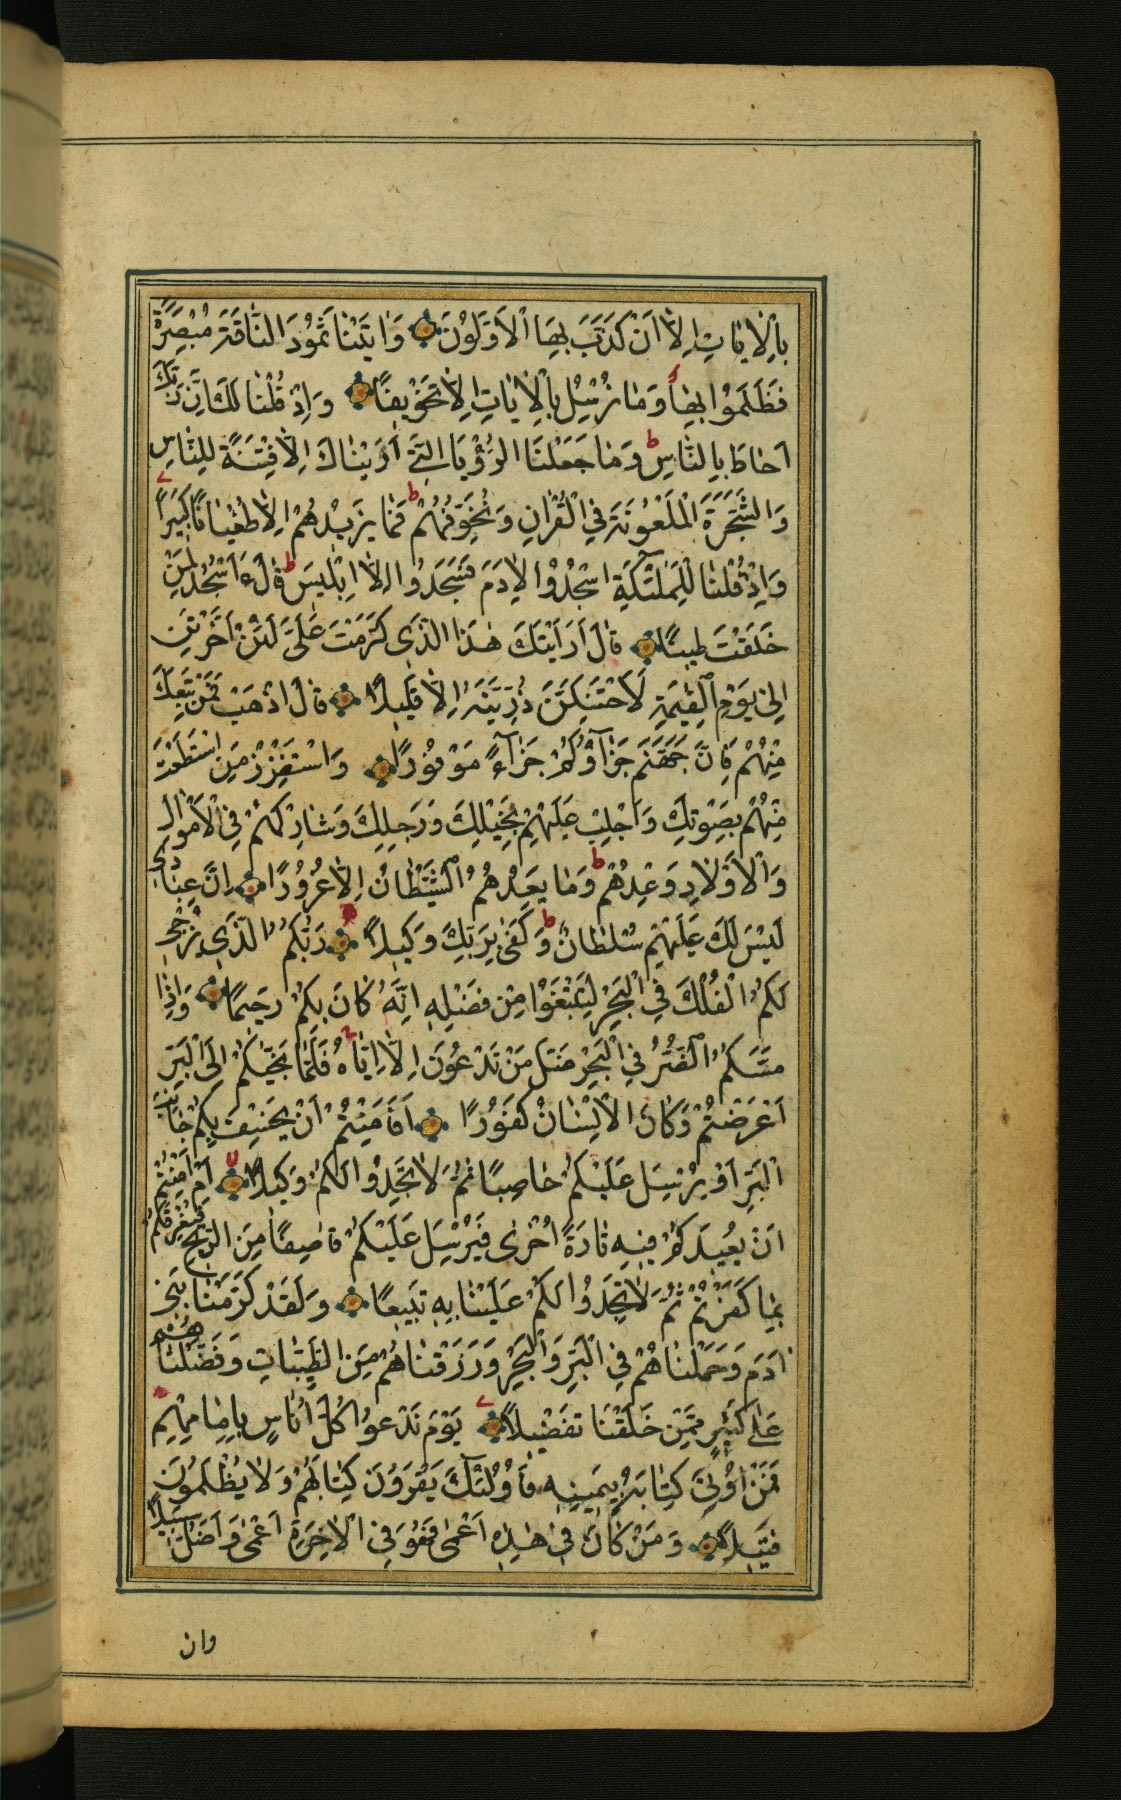 بِالْاٰيَاتِ اِلَّا اَنْ كَذَّبَ بِهَا الْاَوَّلُوْنَ وَاٰتَيْنَا ثَمُوْدَ النَّاقَةَ مُبْصِرَةً
فَظَلَمُوْا بِهَا وَمَا نُرْسِلُ بِالْاٰيَاتِ اِلَّا تَخْوِيفًا وَاِذْ قُلْنَا لَكَ اِنَّ رَبَّكَ
اَحَاطَ بِالنَّاسِ ط وَمَا جَعَلْنَا الرُّؤْيَا الَّتِي اَرَيْنَاكَ اِلَّا فِتْنَةً لِلنَّاسِ
وَالشَّجَرَةَ الْمَلْعُونَةَ فِي الْقُرْاٰنِ وَنُخَوِّفُهُمْ ط فَمَا يَزِيْدُهُمْ اِلَّا طُغْيَانًا كَبِيرًا
وَاِذْ قُلْنَا لِلْمَلٰئِكَةِ اسْجُدُوْا لِاٰدَمَ فَسَجَدُوا اِلَّا اِبْلِيسَ ط قَالَ ءَاَسْجُدُ لِمَنْ
خَلَقْتَ طِينًا قَالَ اَرَاَيْتَكَ هٰذَا الَّذِي كَرَّمْتَ عَلَيَّ لَئِنْ اَخَّرْتَنِ
اِلٰى يَوْمِ الْقِيٰمَةِ لَاَحْتَنِكَنَّ ذُرِّيَّتَهُ اِلَّا قَلِيلًا قَالَ اذْهَبْ فَمَنْ تَبِعَكَ
مِنْهُمْ فَاِنَّ جَهَنَّمَ جَزَآؤُكُمْ جَزَآءً مَوْفُوْرًا وَاسْتَفْزِزْ مَنِ اسْتَطَعْتَ
مِنْهُمْ بِصَوْتِكَ وَاَجْلِبْ عَلَيْهِمْ بِخَيْلِكَ وَرَجِلِكَ وَشَارِكْهُمْ فِي الْاَمْوَالِ
وَالْاَوْلَادِ وَعِدْهُمْ ط وَمَا يَعِدُهُمُ الشَّيْطَانُ اِلَّا غُرُورًا اِنَّ عِبَادِي
لَيْسَ لَكَ عَلَيْهِمْ سُلْطَانٌ ط وَكَفٰى بِرَبِّكَ وَكِيلًا رَبُّكُمُ الَّذِي يُزْجِي
لَكُمُ الْفُلْكَ فِي الْبَحْرِ لِتَبْتَغُوْا مِنْ فَضْلِهِ اِنَّهُ كَانَ بِكُمْ رَحِيمًا وَاِذَا
مَسَّكُمُ الضُّرُّ فِي الْبَحْرِ ضَلَّ مَنْ تَدْعُوْنَ اِلَّا اِيَّاهُ فَلَمَّا نَجّٰيكُمْ اِلَى الْبَرِّ
اَعْرَضْتُمْ وَكَانَ الْاِنْسَانُ كَفُوْرًا اَفَاَمِنْتُمْ اَنْ يَخْسِفَ بِكُمْ جَانِبَ
الْبَرِّ اَوْ يُرْسِلَ عَلَيْكُمْ حَاصِبًا ثُمَّ لَا تَجِدُوْا لَكُمْ وَكِيلًا اَمْ اَمِنْتُمْ
اَنْ يُعِيدَكُمْ فِيهِ تَارَةً اُخْرٰى فَيُرْسِلَ عَلَيْكُمْ قَاصِفًا مِنَ الرِّيحِ فَيُغْرِقَكُمْ
بِمَا كَفَرْتُمْ ثُمَّ لَا تَجِدُوا لَكُمْ عَلَيْنَا بِهِ تَبِيعًا وَلَقَدْ كَرَّمْنَا بَنِي
اٰدَمَ وَحَمَلْنَاهُمْ فِي الْبَرِّ وَالْبَحْرِ وَرَزَقْنَاهُمْ مِنَ الطَّيِّبَاتِ وَفَضَّلْنَاهُمْ
عَلٰى كَثِيرٍ مِمَّنْ خَلَقْنَا تَفْضِيلًا يَوْمَ نَدْعُوا كُلَّ اُنَاسٍ بِاِمَامِهِمْ
فَمَنْ اُوتِيَ كِتَابَهُ بِيَمِينِهِ فَاُولٰئِكَ يَقْرَؤُنَ كِتَابَهُمْ وَلَا يُظْلَمُونَ
فَتِيلًا وَمَنْ كَانَ فِي هٰذِهِ اَعْمٰى فَهُوَ فِي الْاٰخِرَةِ اَعْمٰى وَاَضَلُّ سَبِيلًا
وان